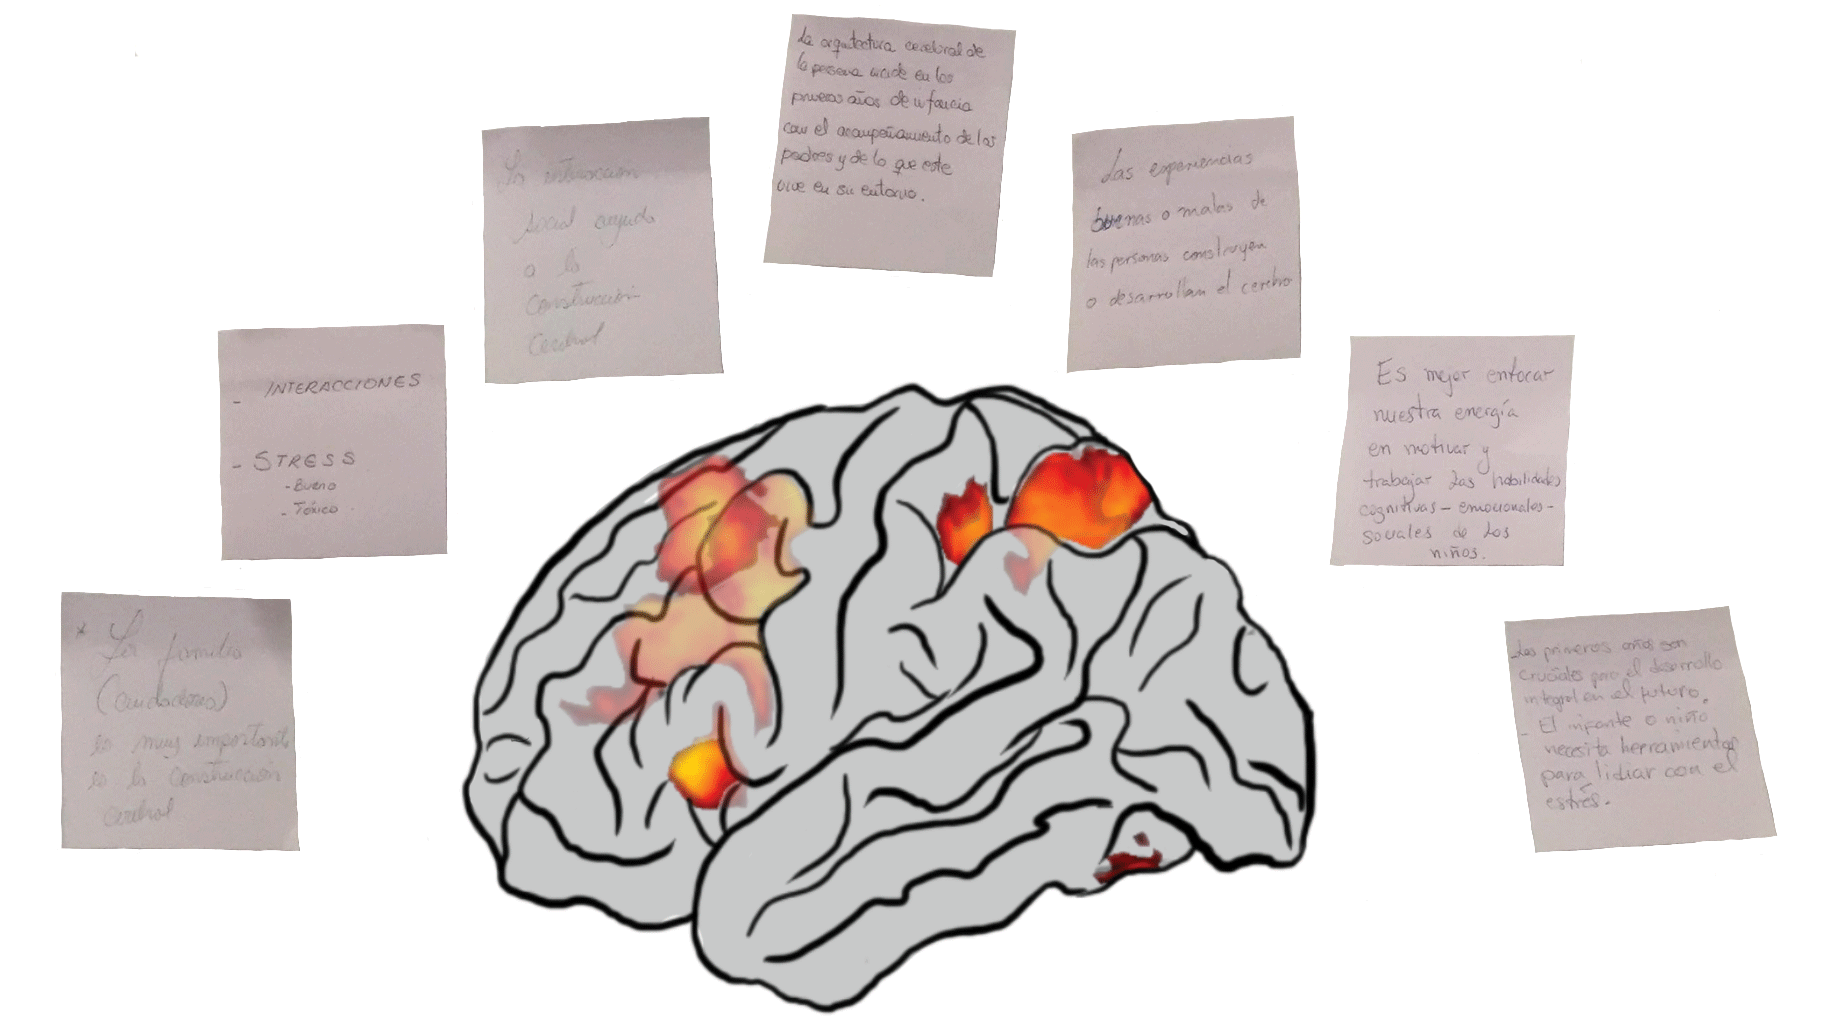 * La familia
(cuidadores)
es muy important
es la construcción
cerebral
- INTERACCIONES
- STRESS
- Bueno
- Tóxico
La interacción
social ayuda
a la
construcción
cerebral
La arquitectura cerebral de
la persona incide en los
primeros años de infancia
con el acompañamiento de los
padres y de lo que este
vive en su entorno.
Las experiencias
buenas o malas de
las personas construyen
o desarrollan el cerebro
Es mejor enfocar
nuestra energía
en motivar y
trabajar las habilidades
cognitivas - emocionales -
sociales de los
niños.
Los primeros años son
cruciales para el desarrollo
integral en el futuro.
- El infante o niño
necesita herramientas
para lidiar con el
estrés.